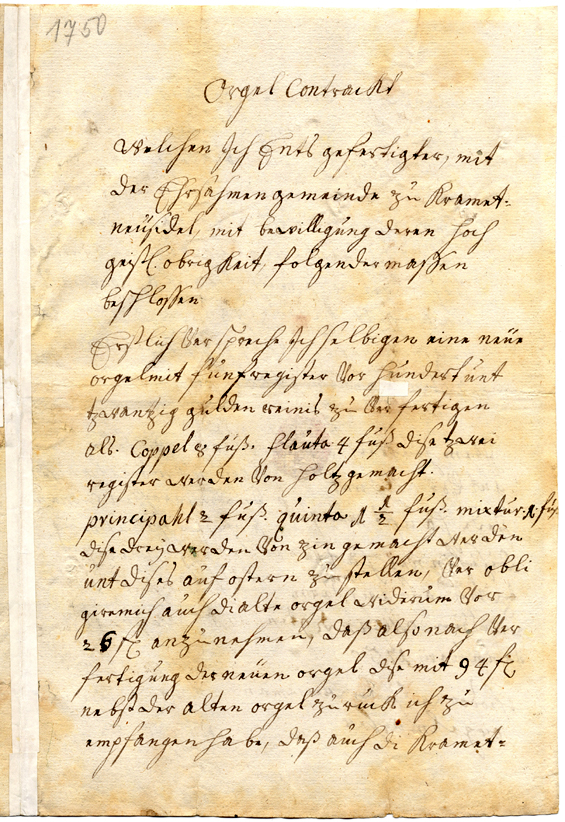 1750
Orgel Contrackt
Welchen Ich Ents gefertigter, mit
der Ehrsahmen gemeinde zu Kramet-
neüsidel, mit bewilligung deren hoch
geistl. obrigkeit, folgender massen
beschlossen
Erstlich Ver spreche Ich selbigen eine neüe
orgel mit fünf register Vor hundert unt
tzwantzig gulden reinis zu Ver fertigen
als. Coppel 8 fuß. flauta 4 fuß dise tzwei
register werden Von holtz gemacht.
principahl 2 fuß. quinta 1 1/2 fuß. mixtur. 1. fuß
dise dreÿ werden Von zin gemacht werden
unt dises auf ostern zu stellen, Ver obli
gire mich auch di alte orgel widerum Vor
26 fl anzunehmen, daß also nach Ver
fertigung der neuen orgel dise mit 94 fl
nebst der alten orgel zu rück ich zu
empfangen habe, daß auch di Kramet=